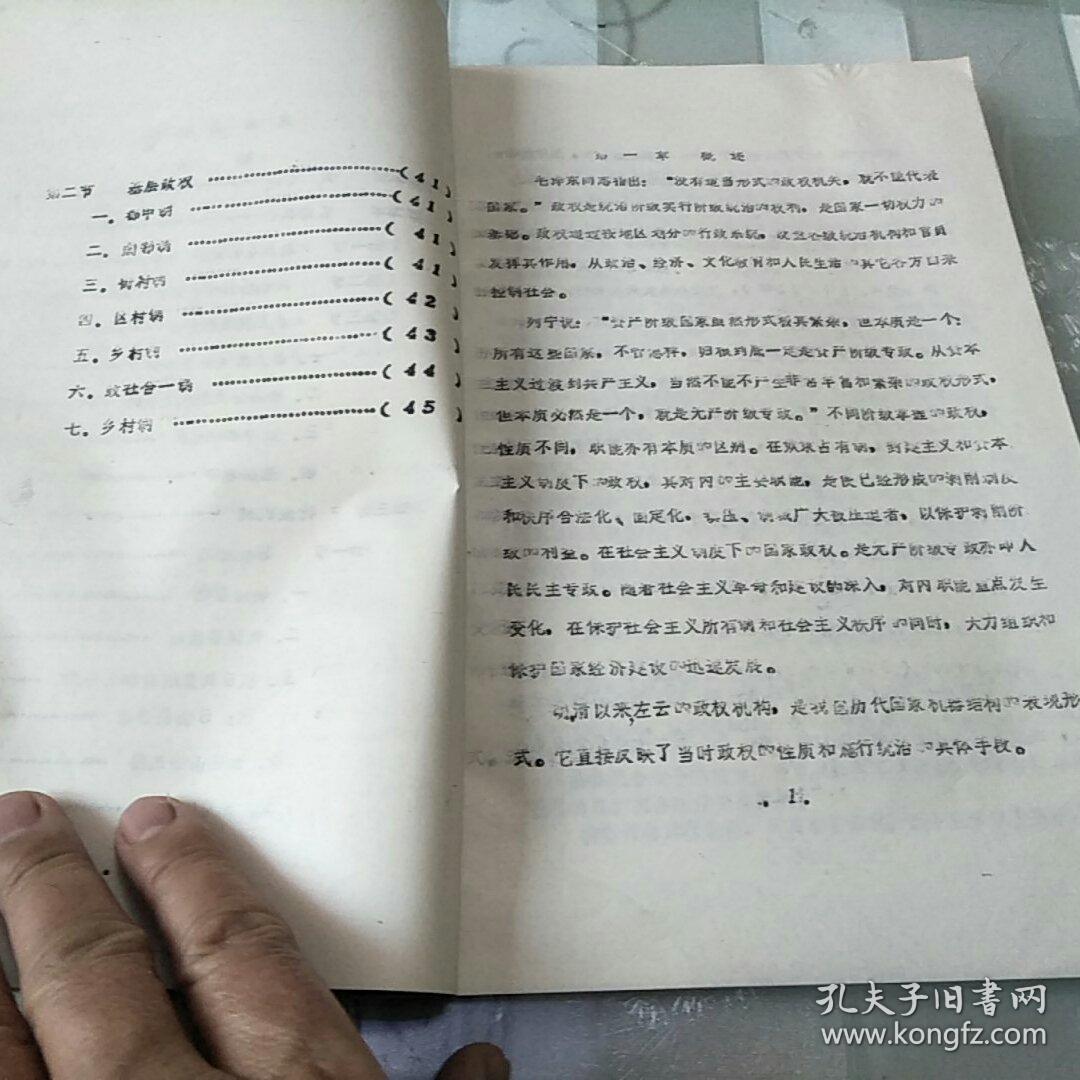 第二节 基层政权……(41)
一.里甲制……(41)
二.闾邻制……(41)
三.街村制……(41)
四.区村制……(42)
五.乡村制……(43)
六.政社合一制……(44)
七.乡村制……(45)
第一章 概述
毛泽东同志指出："没有适当形式的政权机关,就不能代表
国家。"政权是统治阶级实行阶级统治的权利,是国家一切权力的
基础。政权通过按地区划分的行政系统,设立各级统治机构和官员
发挥其作用,从政治、经济、文化教育和人民生活的其它各方面来
控制社会。
列宁说："资产阶级国家虽然形式极其繁杂,但本质是一个:
所有这些国家,不管怎样,归根到底一定是资产阶级专政。从资本
主义过渡到共产主义,当然不能不产生非常丰富和繁杂的政权形式,
但本质必然是一个,就是无产阶级专政。"不同阶级掌握的政权,
性质不同,职能亦有本质的区别。在奴隶占有制,封建主义和资本
主义制度下的政权,其对内的主要职能,是使已经形成的剥削制度
和秩序合法化、固定化,镇压、制裁广大被压迫者,以保护剥削阶
级的利益。在社会主义制度下的国家政权。是无产阶级专政亦即人
民民主专政。随着社会主义革命和建设的深入,对内职能重点发生
变化,在保护社会主义所有制和社会主义秩序的同时,大力组织和
保护国家经济建设的迅速发展。
明清以来,左云的政权机构,是我国历代国家机器结构的表现形
式。它直接反映了当时政权的性质和施行统治的具体手段。
.1.
孔夫子旧書网
www.kongfz.com